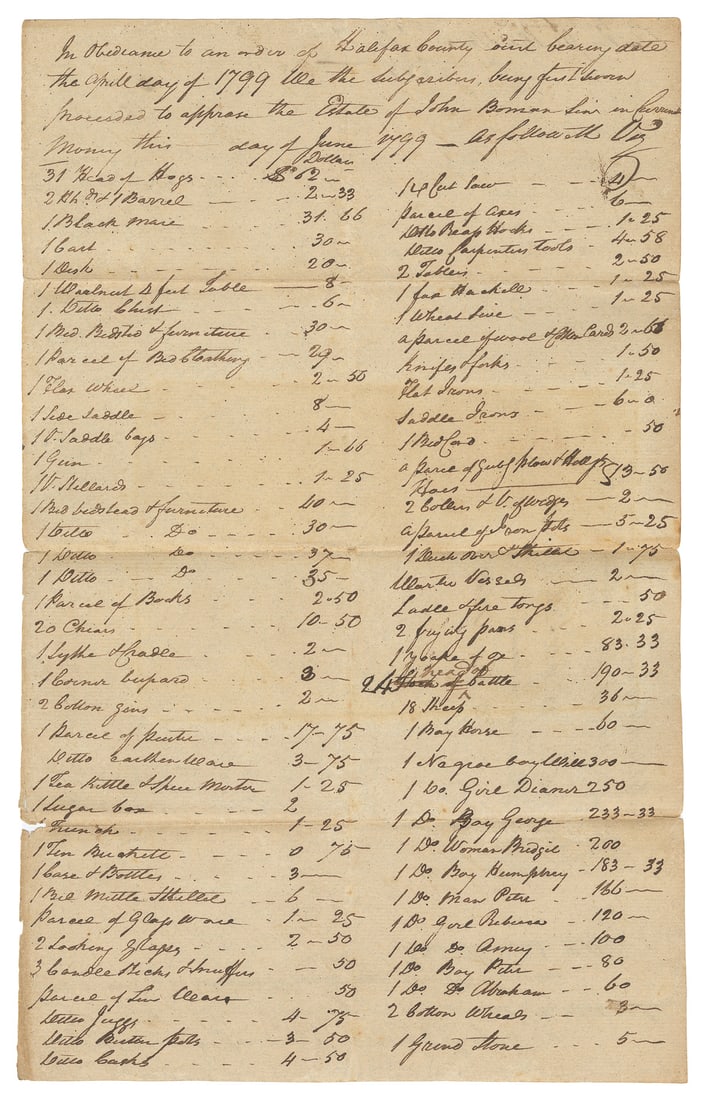 In Obediance to an order of Halifax County Court bearing date
the aprill day of 1799 We the Subscribers, being first sworn
proceeded to apprase the Estate of John Boman Senr in Current
Money this day of June 1799 — As followeth Viz
Dollars
31 Head of Hogs 62
2 Hhds & 1 Barrel 2 – 33
1 Black Mare 31. 66
1 Cart 30
1 Desk 20
1 Woalnut 4 feet Table 8
1 Ditto Chest 6
1 Bed. Bedsted & furniture 30
1 Parcel of Bed Cloathing 29
1 Flax Wheel 2 – 50
1 Side Saddle 8
1 Saddle bags 4
1 Gun 1 – 66
1 Stillards 1 – 25
1 Bed bedstead & furniture 40
1 Ditto Do 30
1 Ditto Do 37
1 Ditto Do 35
1 Parcel of Books 2.50
20 Chears 10 – 50
1 Sythe & Cradle 2
1 Corner cupard 3
2 Cotton gins 2
1 Parcel of puter 17 – 75
Ditto earthen Ware 3 – 75
1 Tea Kittle & Spice Morter 1 – 25
1 Sugar box 2
1 Trunck 1 – 25
1 Tin Buckett 0 75
1 Case & Bottles 3
1 Bel Mittle Skillet 6
Parcel of Glass Ware 1 – 25
2 Looking glases 2 – 50
3 Candle Sticks & Snuffers 50
parcel of Ware 50
Ditto Juggs 4 – 75
Ditto Butter pots 3 – 50
Ditto Casks 4 – 50
1 Cut Saw 4
parcel of axes 6
Ditto Reap Hooks 1 – 25
Ditto Carpenters tools 4 – 58
2 Tables 2 – 50
1 Hackell 1 – 25
1 Wheat Sive 1 – 25
a parcel of wool & Cotton Cards 2 – 66
Knifes & forks 1 – 50
Flat Irons 1 – 25
Saddle Irons 6 – 0
1 Bed Cord 50
a parcel of plow &
Hoes 13 – 50
2 Collers & of wedges 2
a parcel of Iron pots 5 – 25
1 Duch oven & Skillet 1 – 75
Warter Vessels 2
Ladle & fire tongs 50
2 frying pans 2 – 25
1 yoake of ox 83. 33
24 head of Cattle 190 – 33
18 Sheep 36
1 Bay Horse 60
1 Nagroe boy Will 300
1 Do. Girl Dianer 250
1 Do Boy George 233 – 33
1 Do Woman Bridget 200
1 Do. Boy Humphrey 183 – 33
1 Do. Man Peter 166
1 Do Girl Rebecca 120
1 Do Do Amey 100
1 Do Boy Peter 80
1 Do Do Abraham 60
2 Cotton Wheals 3
1 Grind Stone 5